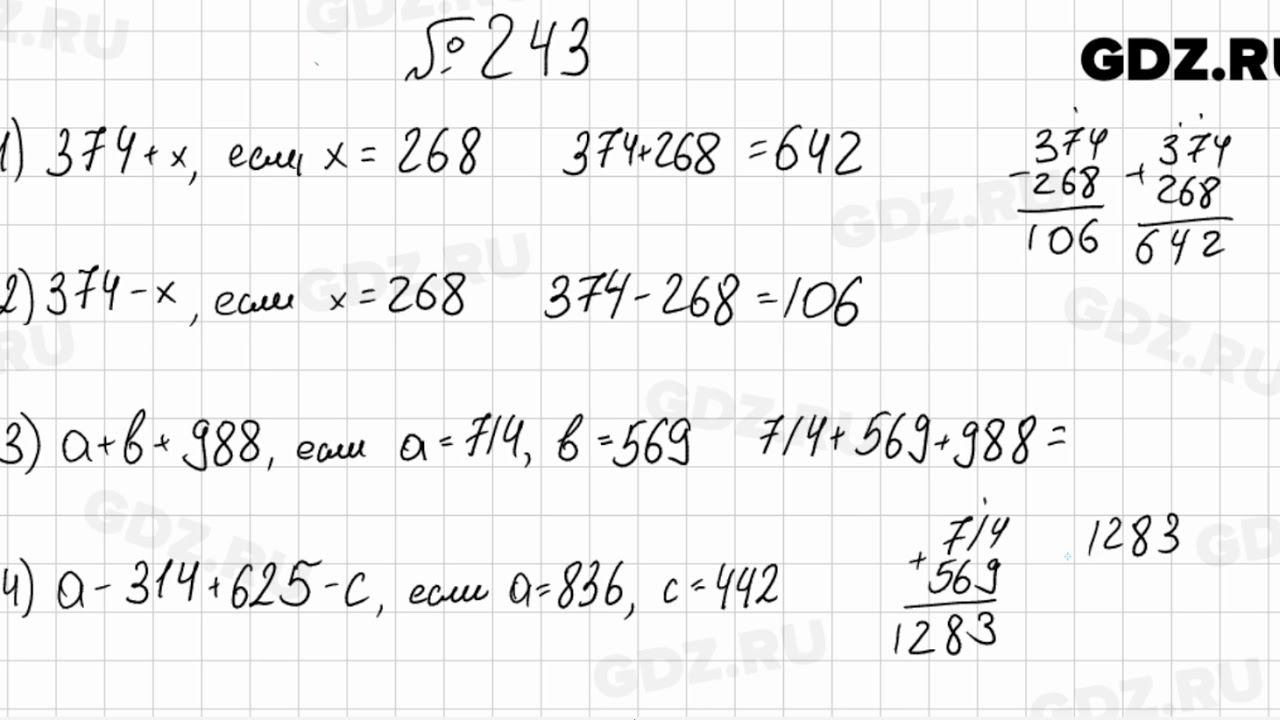 № 243
GDZ.RU
1) 374 + x, если x = 268 374+268 = 642
374
- 268
106
374
+ 268
642
2) 374 - x, если x = 268 374 - 268 = 106
3) a + в + 988, если a = 714, в = 569 714 + 569 + 988 =
714
+ 569
1283
1283
4) a - 314 + 625 - c, если a = 836, c = 442